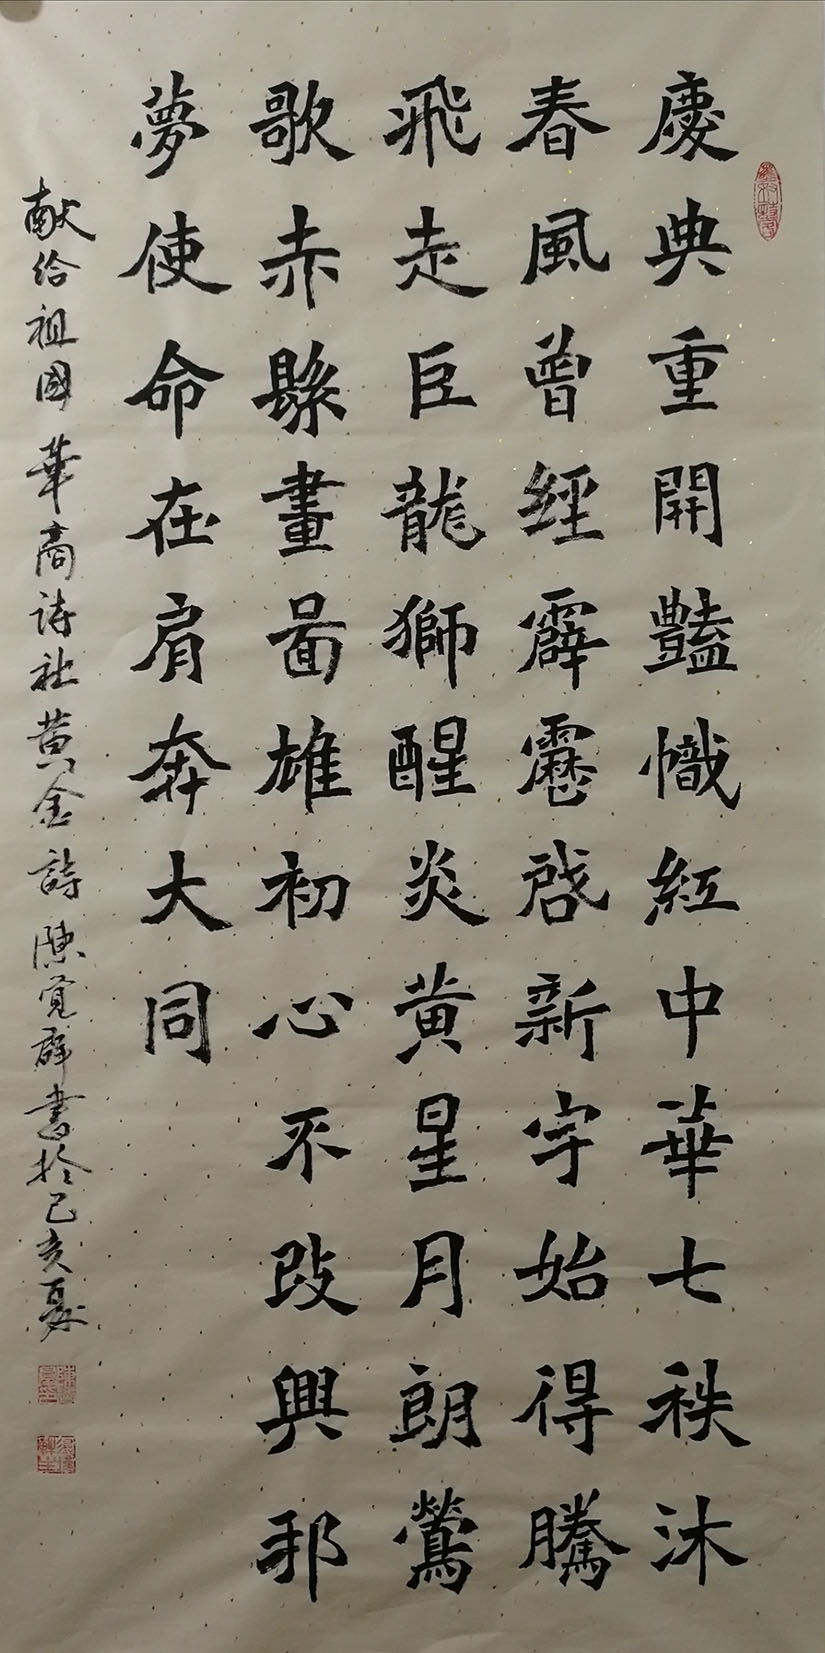 慶典重開豔幟紅中華七秩沐
春風曾經霹靂啓新宇始得騰
飛走巨龍獅醒炎黃星月朗鶯
歌赤縣畫圖雄初心不改興邦
夢使命在肩奔大同
献给祖國 華商诗社黄金詩 陳寬辟書於己亥夏